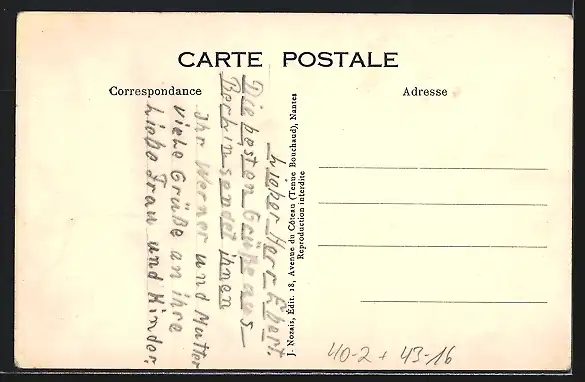 CARTE POSTALE
Correspondance
Adresse
Lieber Herr Ebert.
Die besten Grüße aus
Berlin sendet ihnen
Ihr Werner und Mutter
viele Grüße an ihre
Liebe Frau und Kinder.
J. Nozais, Édit. 18, Avenue du Côteau (Tenue Bouchaud), Nantes
Reproduction interdite
40-2 + 43-16